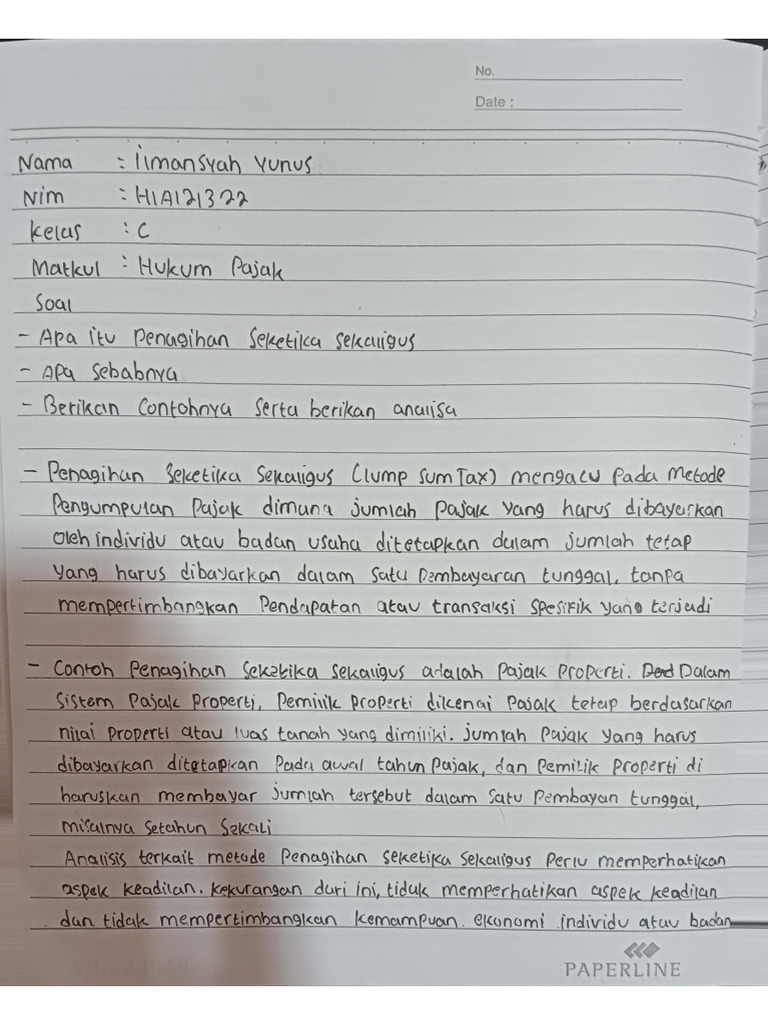 No.
Date :
Nama : Ilmansyah Yunus
Nim : H1A121322
Kelas : C
Matkul : Hukum Pajak
Soal
- Apa itu Penagihan Seketika Sekaligus
- Apa Sebabnya
- Berikan Contohnya Serta berikan analisa
- Penagihan Seketika Sekaligus (lump sum Tax) mengacu Pada Metode
Pengumpulan Pajak dimana jumlah Pajak yang harus dibayarkan
oleh individu atau badan usaha ditetapkan dalam jumlah tetap
yang harus dibayarkan dalam Satu Pembayaran tunggal, tanpa
mempertimbangkan Pendapatan atau transaksi Spesifik yang terjadi
- Contoh Penagihan Seketika Sekaligus adalah Pajak Properti. Dalam
Sistem Pajak Properti, Pemilik Properti dikenai Pajak tetap berdasarkan
nilai Properti atau luas tanah yang dimiliki. jumlah Pajak yang harus
dibayarkan ditetapkan Pada awal tahun Pajak, dan Pemilik Properti di
haruskan membayar jumlah tersebut dalam Satu Pembayan tunggal,
misalnya Setahun Sekali
Analisis terkait metode Penagihan Seketika Sekaligus Perlu memperhatikan
aspek keadilan. kekurangan dari ini, tidak memperhatikan aspek keadilan
dan tidak mempertimbangkan kemampuan ekonomi individu atau badan
PAPERLINE